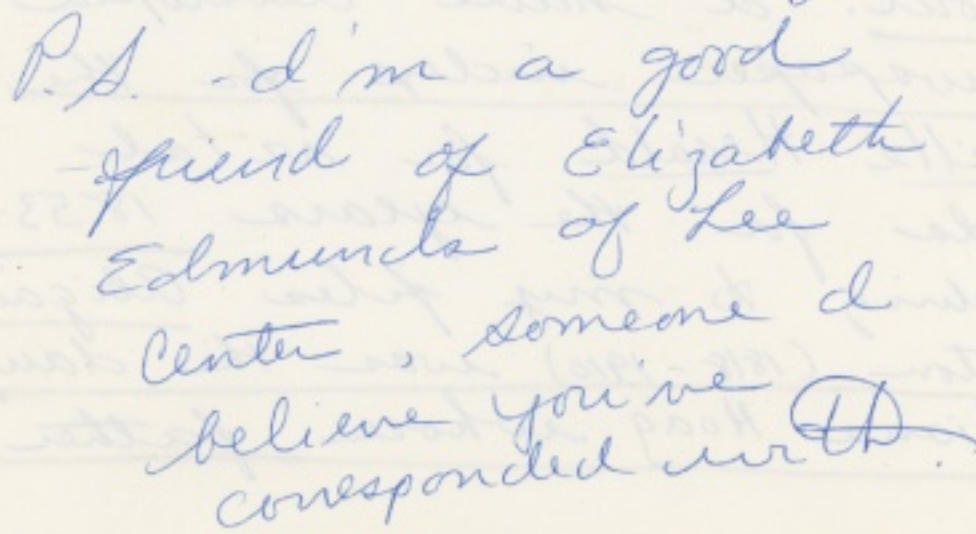 P.S. - I'm a good
friend of Elizabeth
Edmunds of Lee
Center, someone I
believe you've
corresponded with.